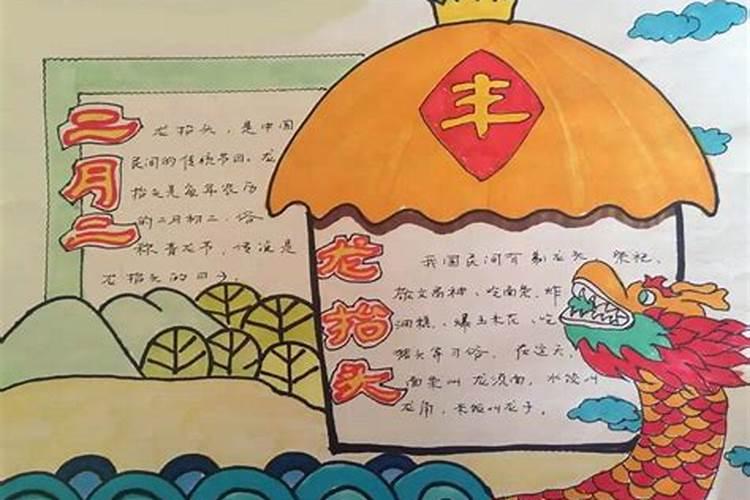 丰
二月二
龙抬头，是中国
民间的传统节日。龙
抬头是每年农历
的二月初二，俗
称青龙节，传说是
龙抬头的日子。
龙抬头
我国民间有剃龙头、祭祀、
敬文昌神、吃面条、炸
油糕、爆玉米花、吃
猪头等习俗。在这天，
面条叫龙须面，水饺叫
龙角，米饭叫龙子。